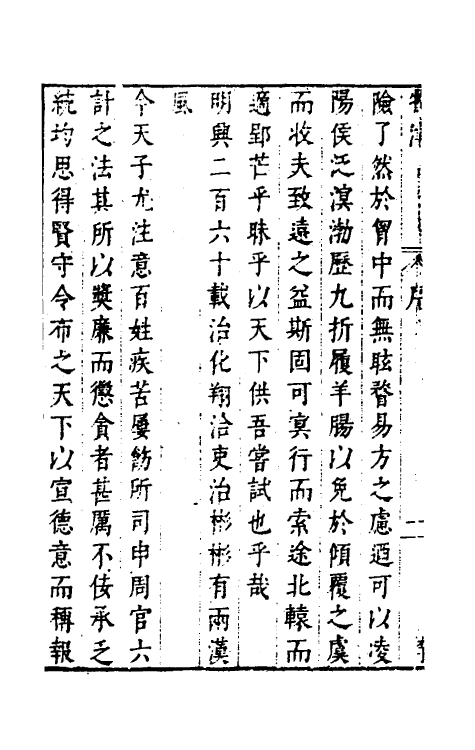 險了然於胷中而無眩瞀易方之慮迺可以凌
陽侯泛溟渤歷九折履羊腸以免於傾覆之虞
而收夫致遠之益斯固可冥行而索途北轅而
適郢芒乎昧乎以天下供吾嘗試也乎哉
明興二百六十載治化翔洽吏治彬彬有兩漢
風
今天子尤注意百姓疾苦屢飭所司申周官六
計之法其所以獎廉而懲貪者甚厲不佞承乏
統均思得賢守令布之天下以宣德意而稱報